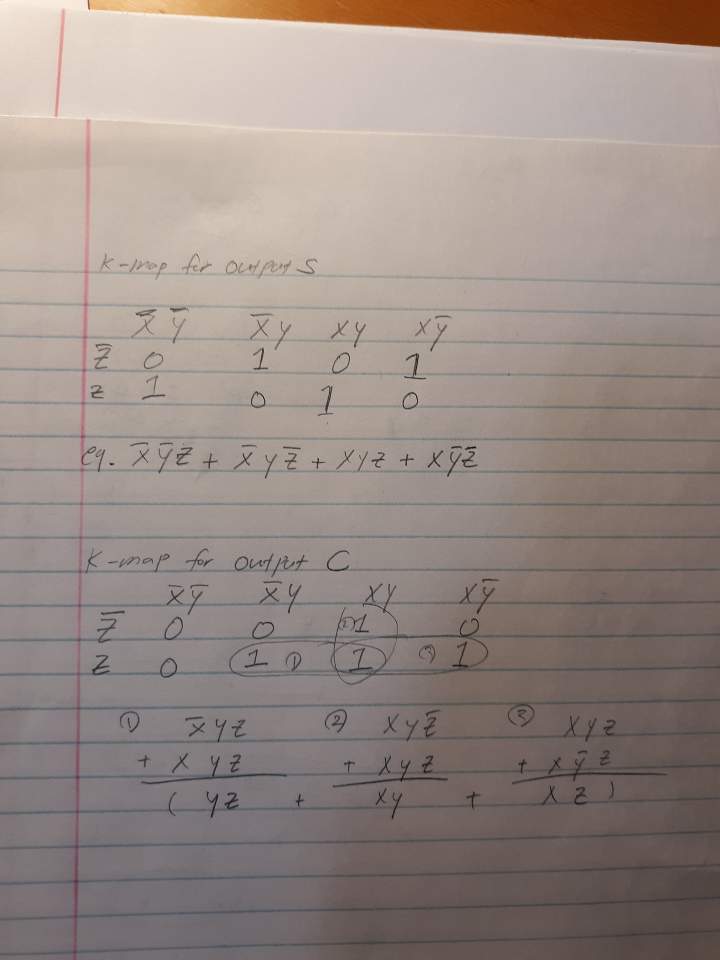 K-map for output S
X̅ Y̅ X̅ Y X Y X Y̅
Z̅ 0 1 0 1
Z 1 0 1 0
eq. X̅ Y̅ Z + X̅ Y Z̅ + X Y Z + X Y̅ Z̅
K-map for output C
X̅ Y̅ X̅ Y X Y X Y̅
Z̅ 0 0 (2) 1 0
Z 0 1 (1) 1 (3) 1
(1) X̅ Y Z (2) X Y Z̅ (3) X Y Z
+ X Y Z + X Y Z + X Y̅ Z
( Y Z + X Y + X Z )